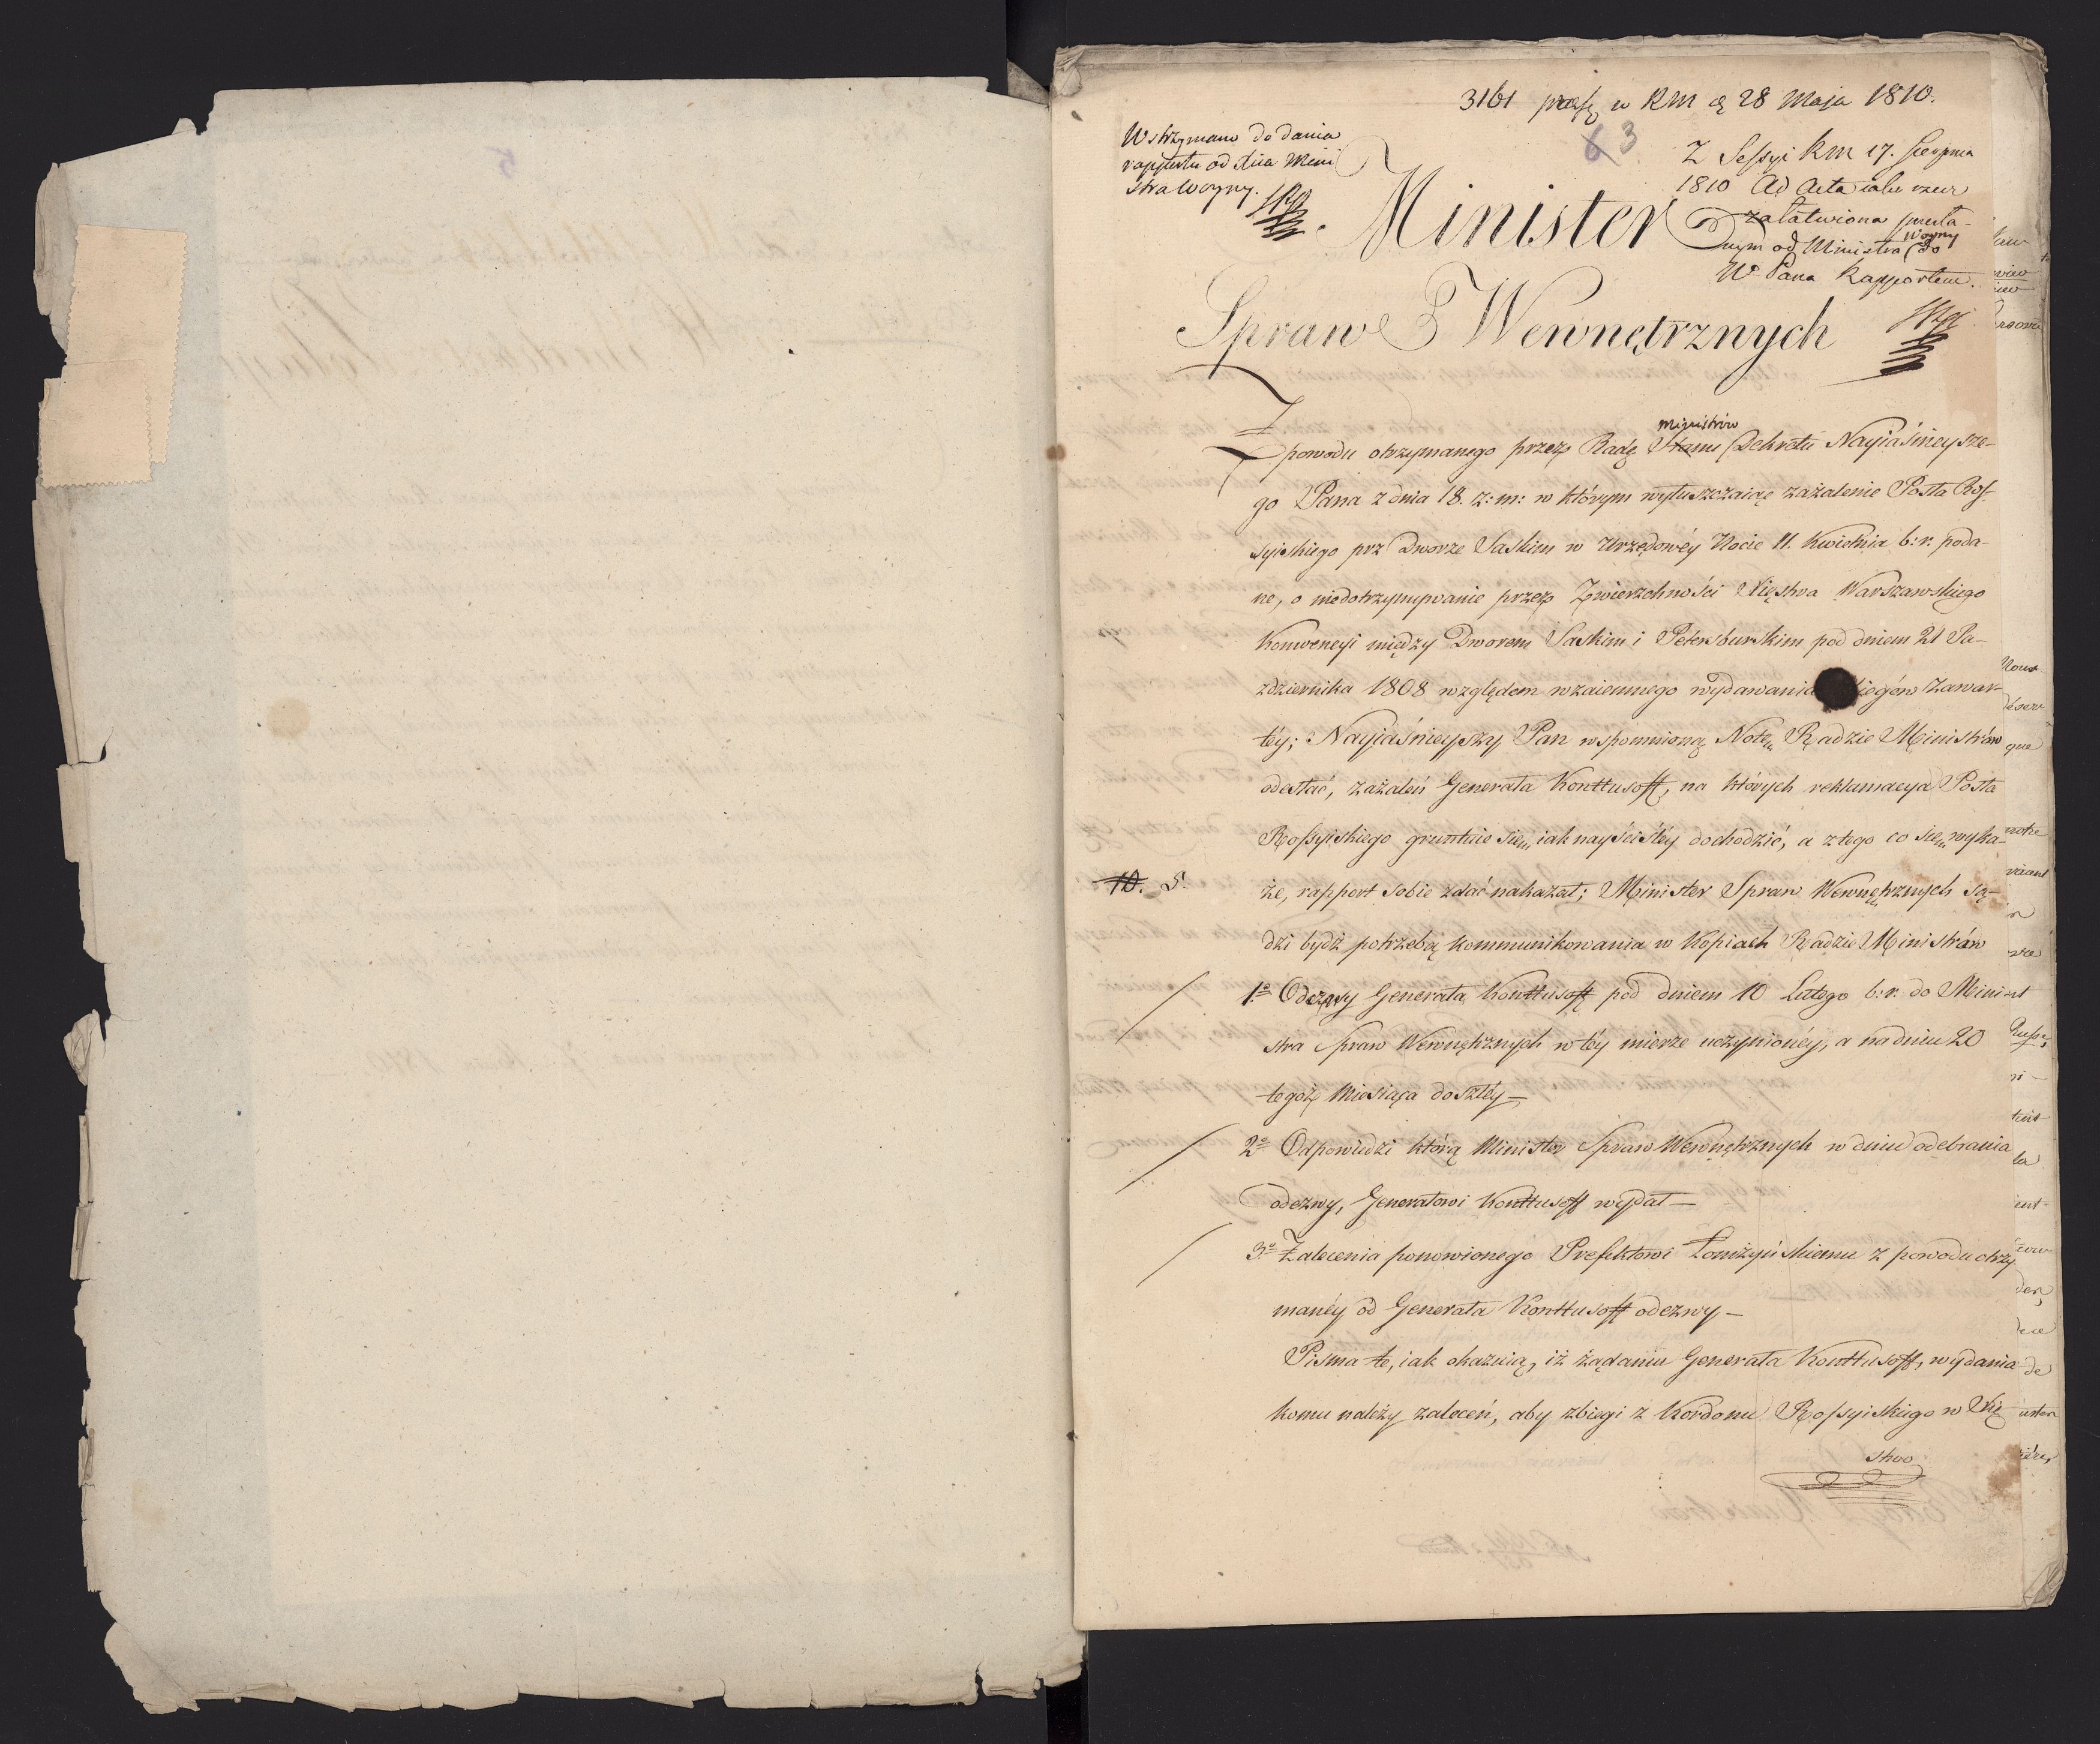 3161 w RM 28 Maja 1810.
6 3
Wstrzymano do dania
rapportu od Mini
stra Woyny.
Z Sessyi RM 17. Sierpnia
1810 Ad Acta iako rzecz
załatwiona
nym od Ministra Woyny do
N. Pana Rapportem.
Minister
Spraw Wewnętrznych
Z
powodu otrzymanego przez Radę Stanu Ministrów Dekretu Nayiaśnieysze-
go Pana z dnia 18. z: m: w którym wyłuszczaiąc zażalenie Posła Ros-
syiskiego prz Dworze Saskim w Urzędowéy Nocie 11. Kwietnia b: r. poda-
ne, o niedotrzymywanie przez Zwierzchności Xięstwa Warszawskiego
Konwencyi między Dworem Saskim i Petersburskim pod dniem 21 Pa-
zdziernika 1808 względem wzaiemnego wydawania iegów zawar-
téy; Nayiaśnieyszy Pan wspomnioną Notę Radzie Ministrów
odesłać, zażaleń Generała Konttusoff, na których reklamacya Posła
Rossyiskiego gruntuie siem iak nayściśléy dochodzić, a z tego co siem wyka-
10. 5.
że, rapport sobie zdać nakazał; Minister Spraw Wewnętrznych są-
dzi bydź potrzebą kommunikowania w Kopiach Radzie Ministrów
1o Odezwy Generała Konttusoff pod dniem 10 Lutego b: r. do Mini-
stra Spraw Wewnętrznych w téy mierze uczynionéy, a na dniu 20
tegoż Miesiąca doszłéy —
2o Odpowiedzi którą Minister Spraw Wewnętrznych w dniu odebrania
odezwy, Generałowi Konttusoff wydał —
3o Zalecenia ponowionego Prefektowi Łomżyńskiemu z powodu otrzy
manéy od Generała Konttusoff odezwy —
Pisma te, iak okazuią, iż żądaniu Generała Konttusoff, wydania
komu należy zaleceń, aby zbiegi z Kordonu Rossyiskiego w Xię
stwo